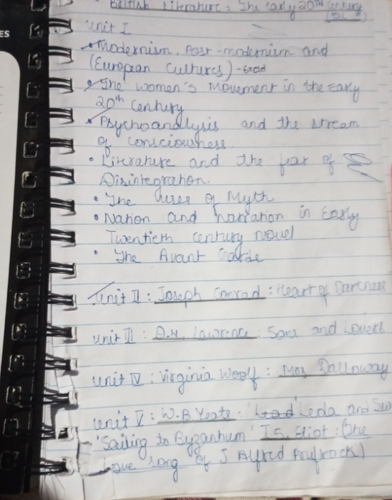 British Literature: The early 20th Century
Unit I
• Modernism, Post-modernism and
(European Cultures)
• The Women's Movement in the Early
20th Century
• Psychoanalysis and the Stream
of Consciousness
• Literature and the fear of
Disintegration.
• The Uses of Myth
• Nation and Narration in Early
Twentieth Century Novel
• The Avant Garde
Unit II: Joseph Conrad: Heart of Darkness
Unit III: D.H. Lawrence: Sons and Lovers
Unit IV: Virginia Woolf: Mrs Dalloway
Unit V: W.B Yeats: 'Leda and Swan
'Sailing to Byzantium' T.S. Eliot: (The
Love Song of J Alfred Prufrock)
ES